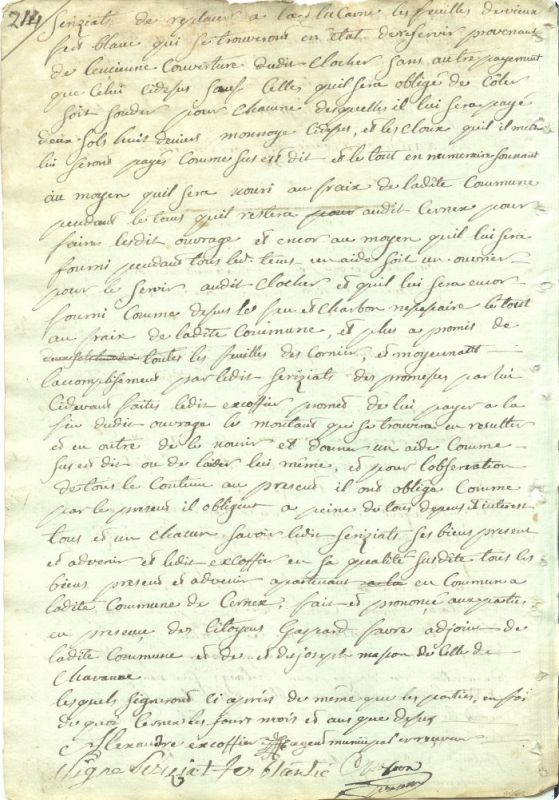 214
Seriziat de replacer a la lucarne les feuilles de vieux
fers blanc qui se trouverons en etat de reservir provenant
de lencienne Couverture dudit Clocher sans autre payement
que Celui Cidesus sauf Celles quil sera obligé de
soit souder pour Chacune desquelles il lui sera payé
deux sols huit deniers monnoye Cidesus, et les Cloux qu'il mettra
lui serons payés Comme sus est dit et le tout en numeraire sonnant
au moyen quil sera nouri au fraix de ladite Commune
pendant le tems quil restera audit Cernex pour
faire lesdit ouvrage et encor au moyen quil lui sera
fourni pendant tous led. tems un aide soit un ouvrier
pour le servir audit Clocher et quil lui sera encor
fourni Comme desus le feu et Charbon nesesaire le tout
au fraix de ladite Commune, et plus a promis de
toutes les feuilles des Cornier, et moyenant
l'accomplisement par ledit Seriziat des promeses par lui
Cidevant faites ledit excoffier promet de lui payer a la
fin dudit ouvrage le montant qui se trouvera en resulter
et en outre de le nourir et donner un aide Comme
sus est dit ou de laider lui même, et pour l'observation
de tout le Contenu au present il ont obligé Comme
par le present il obligent a peine de tous depens et interest
tous et un Chacun savoir ledit Seriziat ses biens present
et advenir et ledit excoffier en sa qualité susdite tous les
biens present et advenir apartenant en Commun a
ladite Commune de Cernex, fait et prononcé aux parties
en presence des Citoyens Gaspard favre adjoint de
ladite Commune et de joseph masson de Celle de
Chavanne
lesquels signeront Ci après de même que les parties, en foi
de quoi Cernex les jours mois et ans que desus
Alexandre excoffier agent municipal
Signe Seriziat ferblantié